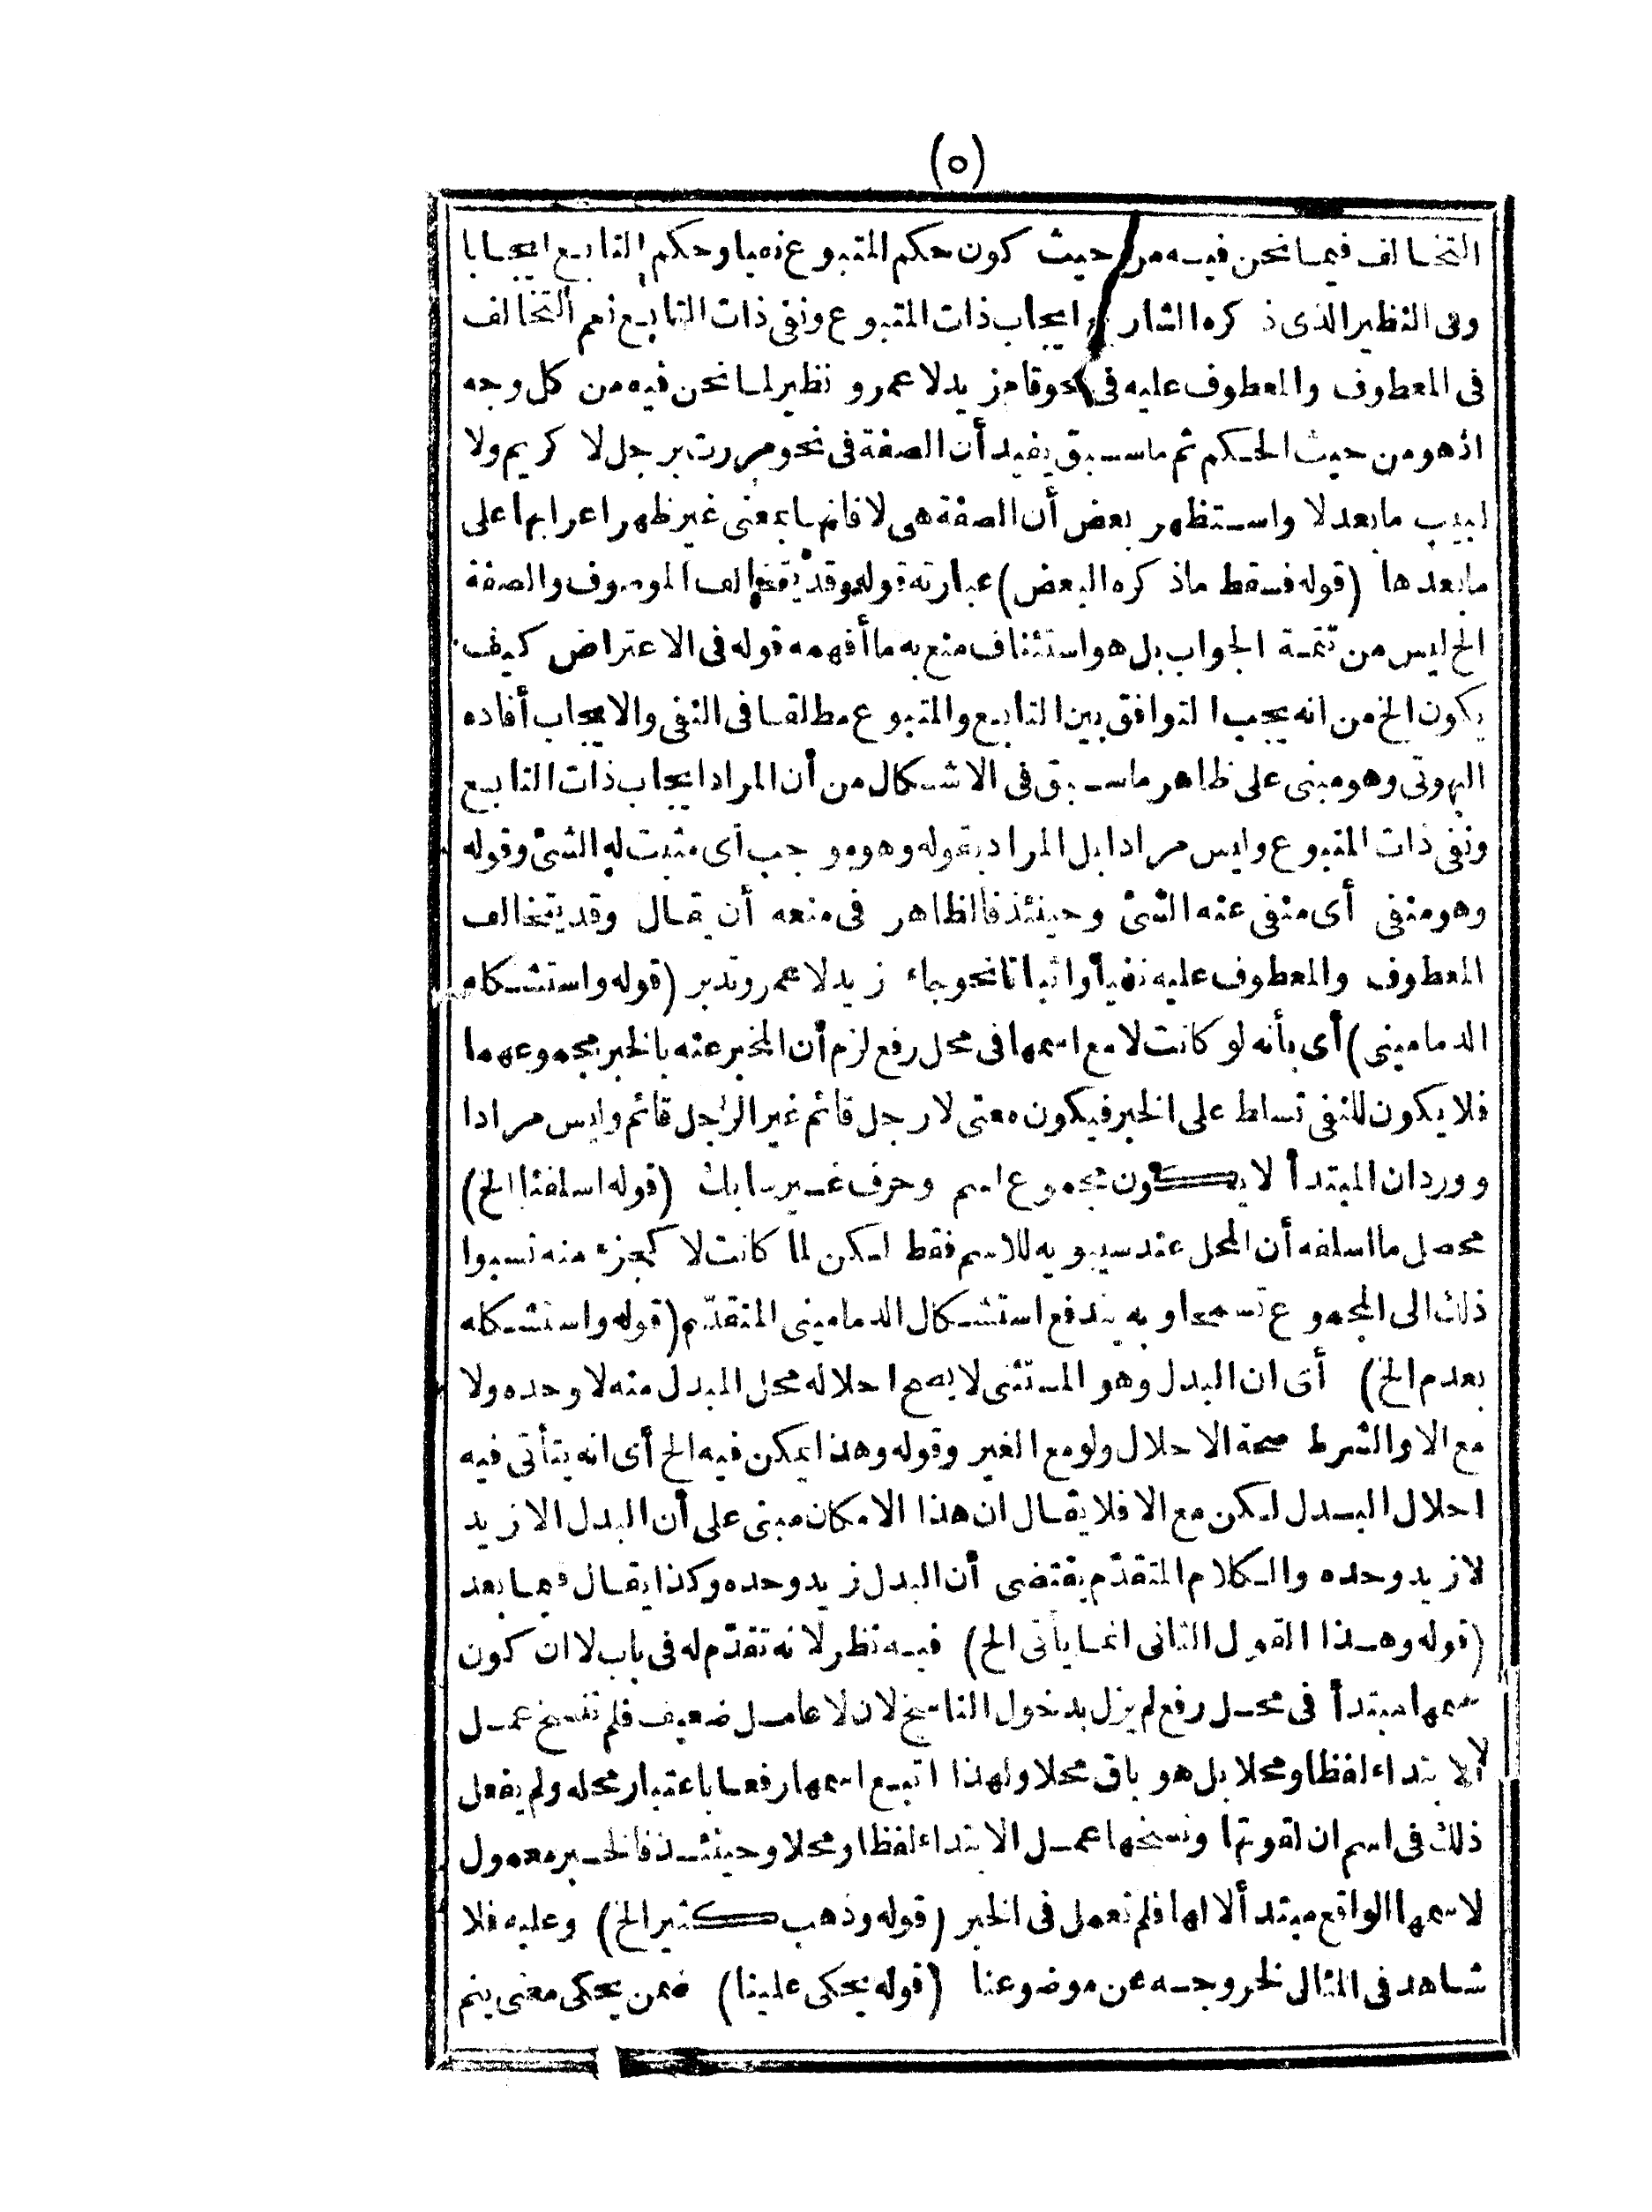 (٥)
التخالف فيما نحن فيه من حيث كون حكم المتبوع نفيا وحكم التابع ايجابا
وفى النظير الذى ذكره الشارح ايجاب ذات المتبوع ونفى ذات التابع نعم التخالف
فى المعطوف والمعطوف عليه فى نحو قام زيد لا عمرو نظير لما نحن فيه من كل وجه
اذ هو من حيث الحكم ثم ما سبق يفيد أن الصفة فى نحو مررت برجل لا كريم ولا
لبيب ما بعد لا واستظهر بعض أن الصفة هى لا فانها بمعنى غير ظهر اعرابها على
ما بعدها (قوله فسقط ما ذكره البعض) عبارته قوله وقد يتخالف الموصوف والصفة
الخ ليس من تتمة الجواب بل هو استئناف منع به ما أفهمه قوله فى الاعتراض كيف
يكون الخ من انه يجب التوافق بين التابع والمتبوع مطلقا فى النفى والايجاب أفاده
البهوتى وهو مبنى على ظاهر ما سبق فى الاشكال من أن المراد ايجاب ذات التابع
ونفى ذات المتبوع وليس مرادا بل المراد بقوله وهو موجب أى مثبت له الشئ وقوله
وهو منفى أى منفى عنه الشئ وحينئذ فالظاهر فى منعه أن يقال وقد يتخالف
المعطوف والمعطوف عليه نفيا واثباتا نحو جاء زيد لا عمرو تدبر (قوله واستشكله
الدمامينى) أى بأنه لو كانت لا مع اسمها فى محل رفع لزم أن المخبر عنه بالخبر مجموعهما
فلا يكون للنفى تسلط على الخبر فيكون معنى لا رجل قائم غير الرجل قائم وليس مرادا
وورد ان المبتدأ لا يكون مجموع اسم وحرف غير سابك (قوله اسلفنا الخ)
محصل ما اسلفه أن المحل عند سيبويه للاسم فقط لكن لما كانت لا كجزء منه نسبوا
ذلك الى المجموع تسمحا وبه يندفع استشكال الدمامينى المتقدّم (قوله واستشكله
بعدم الخ) أى ان البدل وهو المستثنى لا يصح احلاله محل المبدل منه لا وحده ولا
مع الا والشرط صحة الاحلال ولو مع الغير وقوله وهذا يمكن فيه الخ أى انه يتأتى فيه
احلال البدل لكن مع الا فلا يقال ان هذا الامكان مبنى على أن البدل الا زيد
لا زيد وحده والكلام المتقدّم يقتضى أن البدل زيد وحده وكذا يقال فيما بعد
(قوله وهذا القول الثانى انما يأتى الخ) فيه نظر لانه تقدّم له فى باب لا ان كون
سمها مبتدأ فى محل رفع لم يزل بدخول الناسخ لان لا عامل ضعيف فلم تنسخ عمل
الابتداء لفظا ومحلا بل هو باق محلا ولهذا اتبع اسمها رفعا باعتبار محله ولم يفعل
ذلك فى اسم ان لقوتها ونسخها عمل الابتداء لفظا ومحلا وحينئذ فالخبر معمول
لاسمها الواقع مبتدأ لا لها فلم تعمل فى الخبر (قوله وذهب كثير الخ) وعليه فلا
شاهد فى المثال لخروجه عن موضوعنا (قوله يحكى علينا) ضمن يحكى معنى ينم